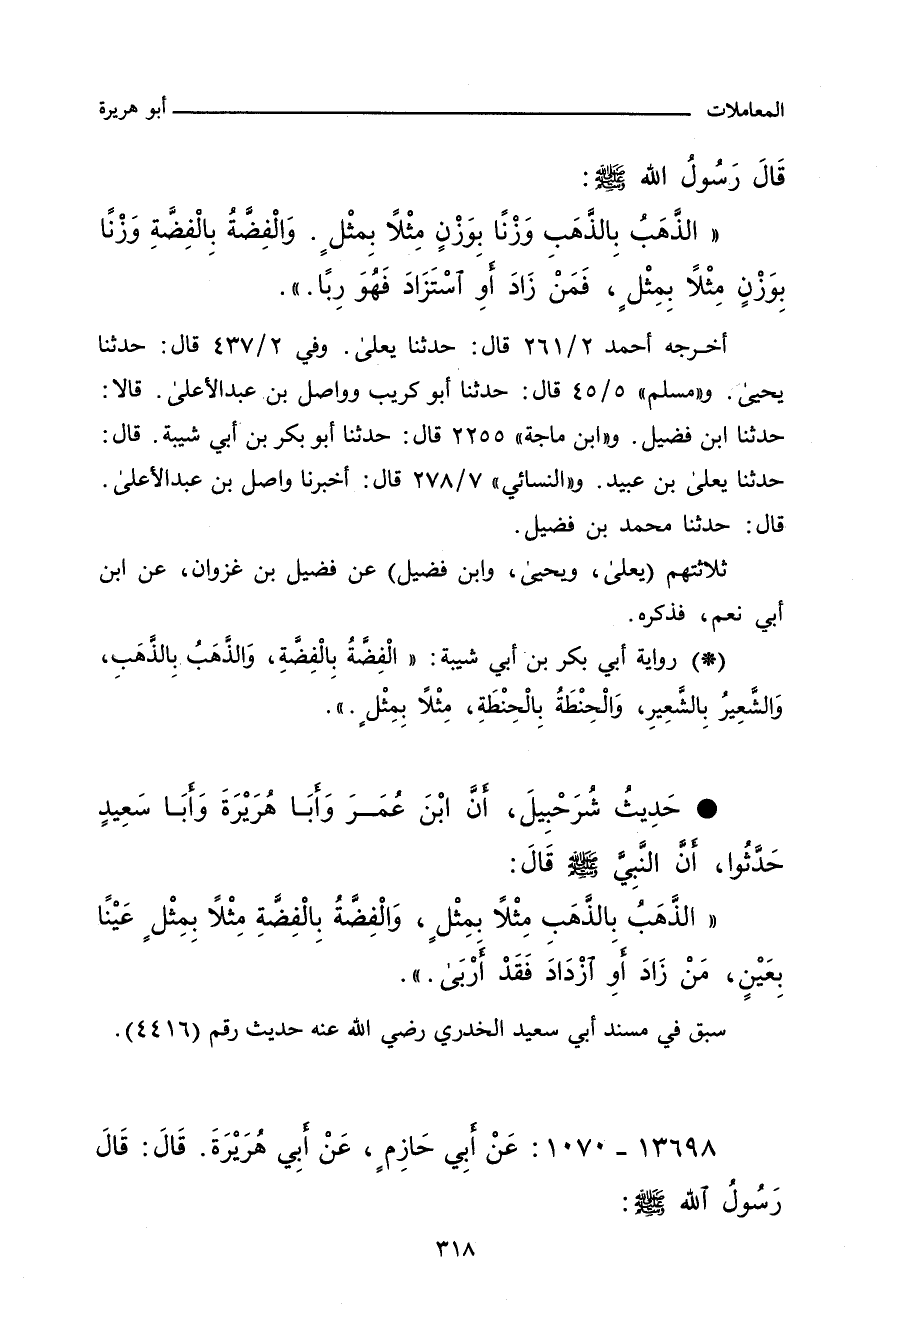 المعاملات ــــــــــــــــــــــــــــــــــــــــ أبو هريرة
قَالَ رَسُولُ الله ﷺ:
« الذَّهَبُ بِالذَّهَبِ وَزْنًا بِوَزْنٍ مِثْلًا بِمِثْلٍ . وَالْفِضَّةُ بِالْفِضَّةِ وَزْنًا
بِوَزْنٍ مِثْلًا بِمِثْلٍ ، فَمَنْ زَادَ أَوِ ٱسْتَزَادَ فَهُوَ رِبًا. ».
أخـرجه أحمد ٢/٢٦١ قال: حدثنا يعلىٰ. وفي ٢/٤٣٧ قال: حدثنا
يحيىٰ. و«مسلم» ٥/٤٥ قال: حدثنا أبو كريب وواصل بن عبدالأعلىٰ. قالا:
حدثنا ابن فضيل. و«ابن ماجة» ٢٢٥٥ قال: حدثنا أبو بكر بن أبي شيبة. قال:
حدثنا يعلىٰ بن عبيد. و«النسائي» ٧/٢٧٨ قال: أخبرنا واصل بن عبدالأعلىٰ.
قال: حدثنا محمد بن فضيل.
ثلاثتهم (يعلىٰ، ويحيىٰ، وابن فضيل) عن فضيل بن غزوان، عن ابن
أبي نعم، فذكره.
(*) رواية أبي بكر بن أبي شيبة: « الْفِضَّةُ بِالْفِضَّةِ، وَالذَّهَبُ بِالذَّهَبِ،
وَالشَّعِيرُ بِالشَّعِيرِ، وَالْحِنْطَةُ بِالْحِنْطَةِ، مِثْلًا بِمِثْلٍ .».
● حَدِيثُ شُرَحْبِيلَ، أَنَّ ابْنَ عُمَـرَ وَأَبَـا هُرَيْرَةَ وَأَبَـا سَعِيدٍ
حَدَّثُوا، أَنَّ النَّبِيَّ ﷺ قَالَ:
« الذَّهَبُ بِالذَّهَبِ مِثْلًا بِمِثْلٍ ، وَالْفِضَّةُ بِالْفِضَّةِ مِثْلًا بِمِثْلٍ عَيْنًا
بِعَيْنٍ، مَنْ زَادَ أَوِ ٱزْدَادَ فَقَدْ أَرْبَىٰ. ».
سبق في مسند أبي سعيد الخدري رضي الله عنه حديث رقم (٤٤١٦).
١٣٦٩٨ - ١٠٧٠ : عَنْ أَبِي حَازِمٍ ، عَنْ أَبِي هُرَيْرَةَ. قَالَ: قَالَ
رَسُولُ ٱلله ﷺ:
٣١٨